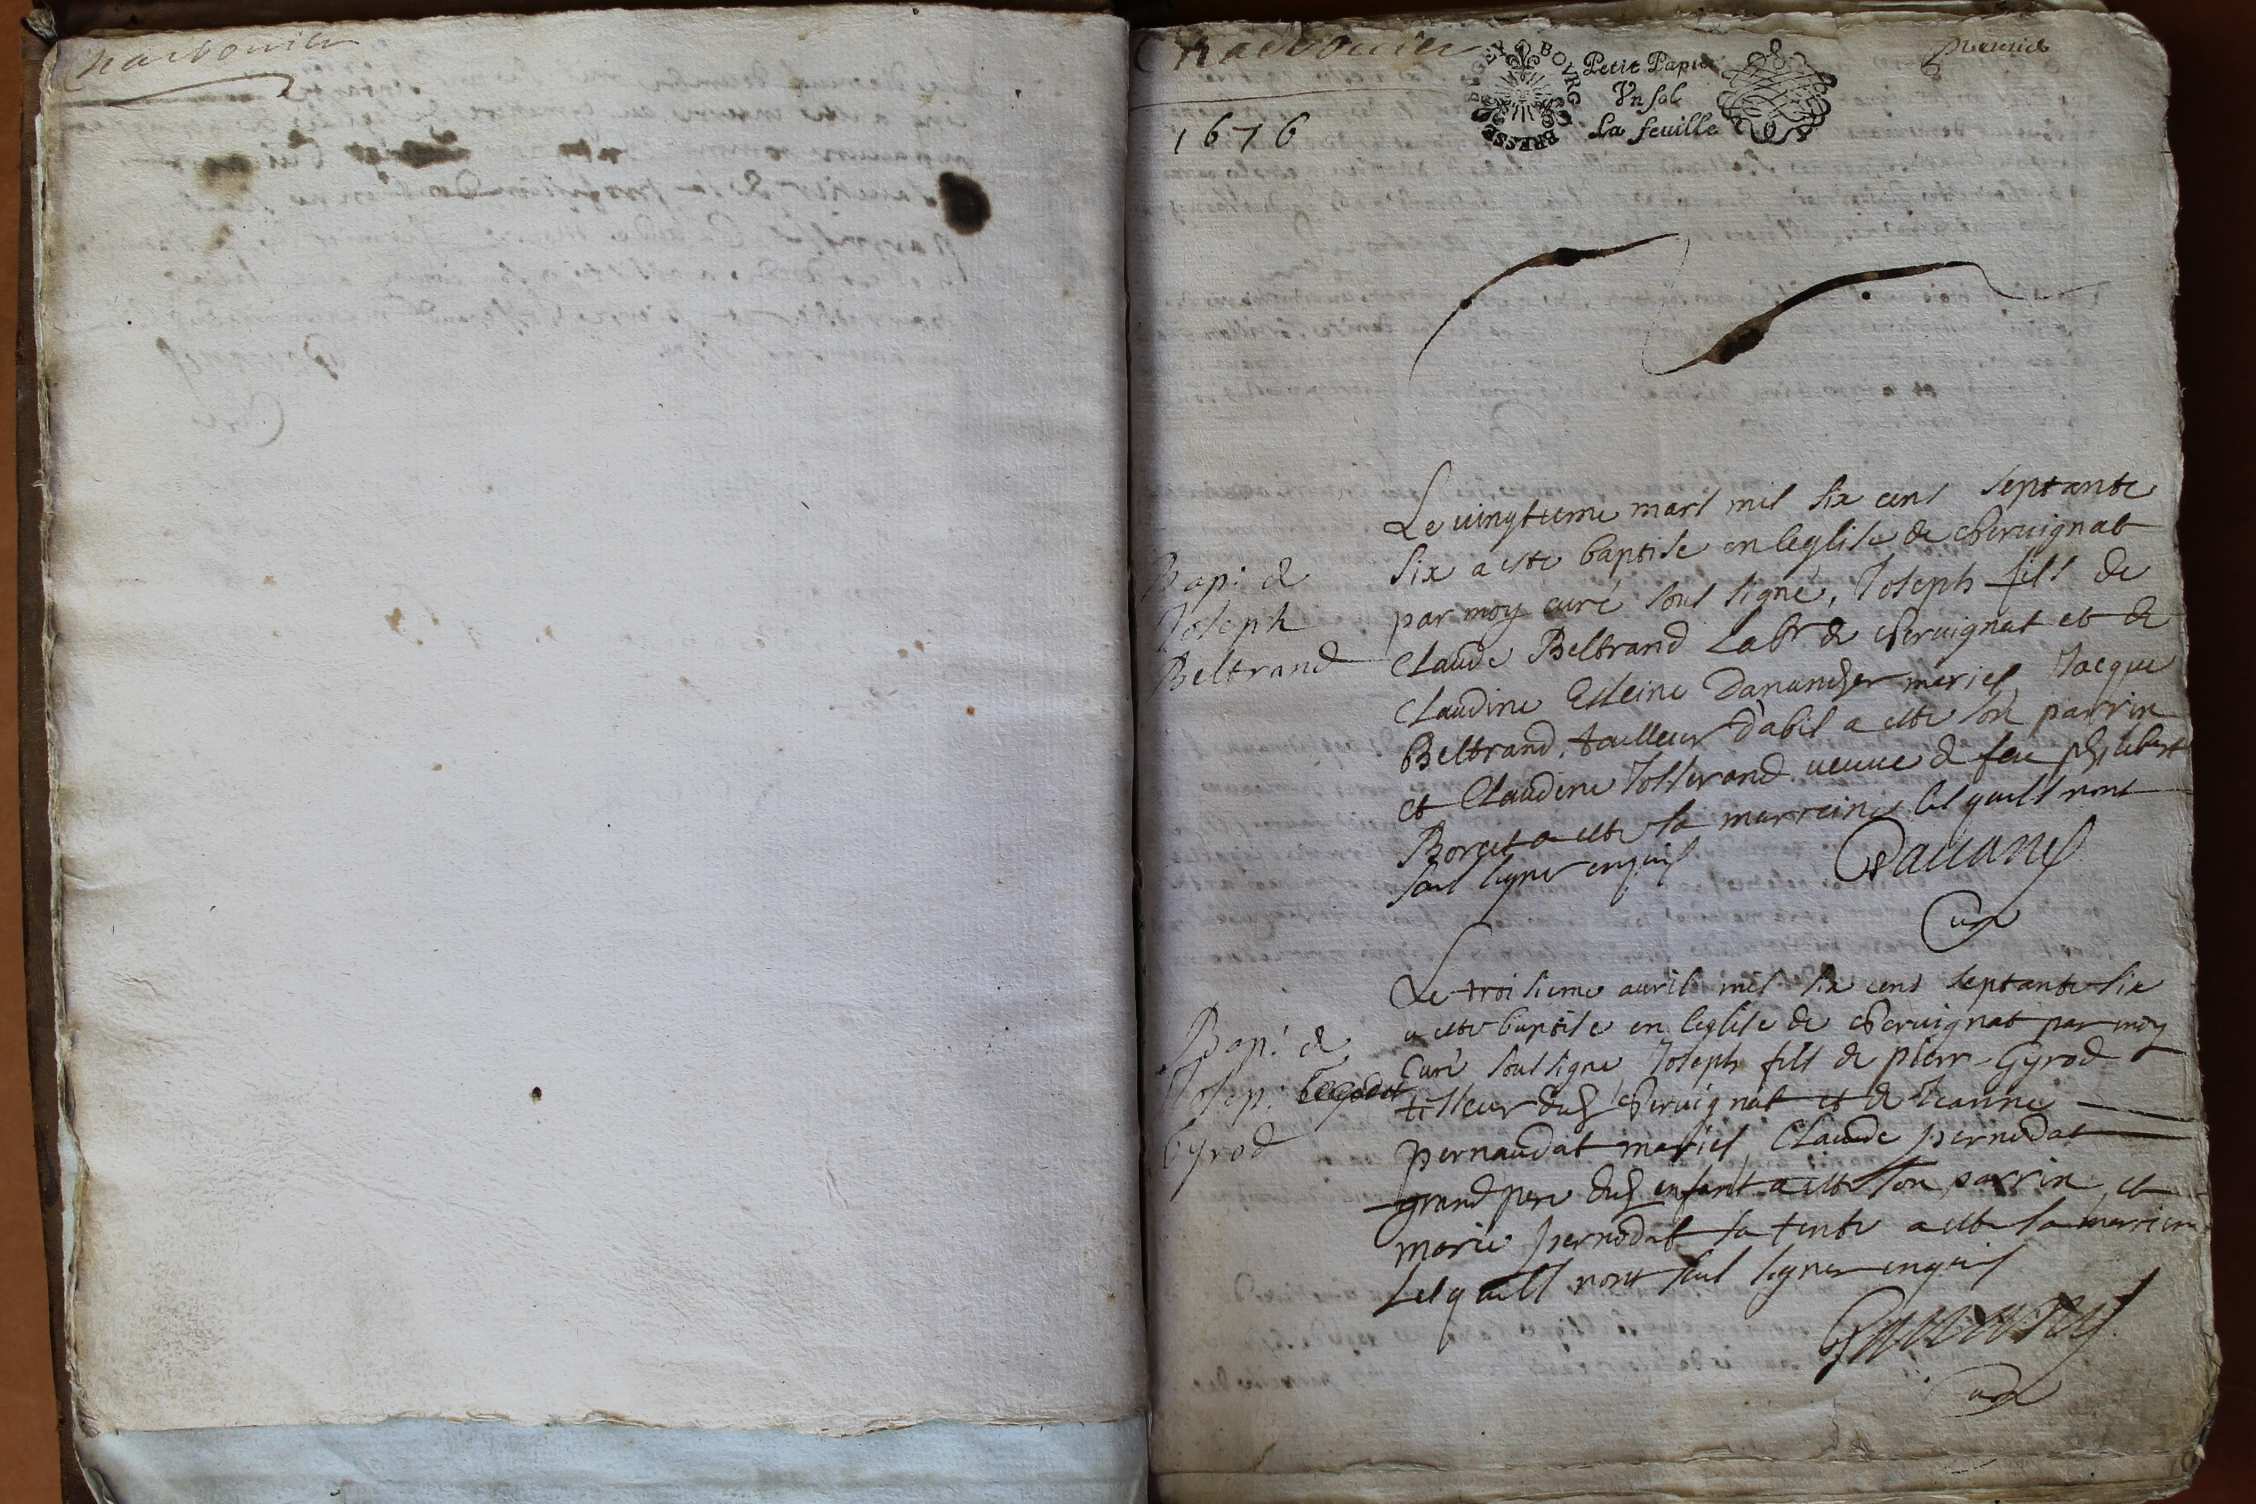 Charbonier
Charbonier
BOVRG BRESSE BVGEY
Petit Papier
Vn sol
La feuille
premier
1676
Bap: de
Joseph
Beltrand
Le uingtieme mars mil six cens septante
six a este baptise en leglise de Cheruignat
par moy curé sous signe, Joseph fils de
Claude Beltrand Labr de Cheruignat et de
Claudine mariés, Jacque
Beltrand, tailleur d'abis a este son parrin
et Claudine Josserand ueuue de feu philibert
Borcet a este sa marreine lesquells nont
seus signer enquis
Curé
Bap: de
Josep:
Gyrod
Le troisieme auril mil six cens septante six
a este baptise en leglise de Cheruignat par moy
Curé soussigne Joseph fils de pierre Gyrod
tisseur dud Cheruignat et de Jeanne
pernaudat mariés, Claude pernodat
grand pere dud enfant a este son parrin et
marie pernodat sa tente a este sa marreine
Lesquells nont seus signer enquis
Curé